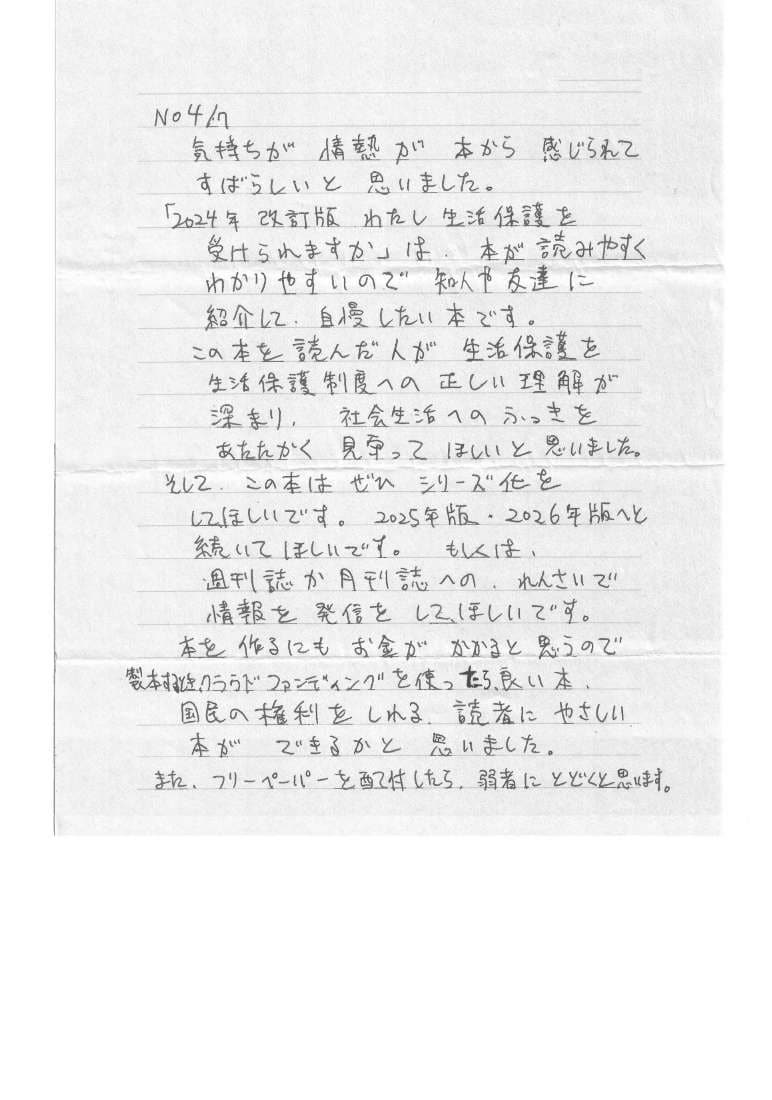 No 4/7
気持ちが 情熱が 本から 感じられて
すばらしいと 思いました。
「2024年 改訂版 わたし 生活保護を
受けられますか」は、本が 読みやすく
わかりやすいので 知人や 友達に
紹介して、自慢したい本です。
この本を 読んだ人が 生活保護を
生活保護制度への 正しい 理解が
深まり、 社会生活への ふっきを
あたたかく 見守って ほしいと 思いました。
そして、この本は ぜひ シリーズ化を
してほしいです。 2025年版・2026年版へと
続いて ほしいです。 もしくは、
週刊誌か 月刊誌への、れんさいで
情報を 発信を して、ほしいです。
本を 作るにも お金が かかると 思うので
製本する途、クラウドファンディングを使ったら、良い本、
国民の 権利を しれる、読者に やさしい
本が できるかと 思いました。
また、フリーペーパーを配付したら、弱者に とどくと思います。